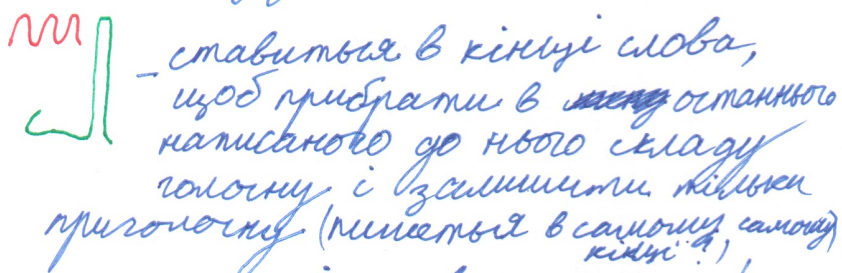 – ставиться в кінці слова,
щоб прибрати в останнього
написаного до нього складу
голосну і залишити тільки
приголосну (пишеться в самому самому
кінці?)